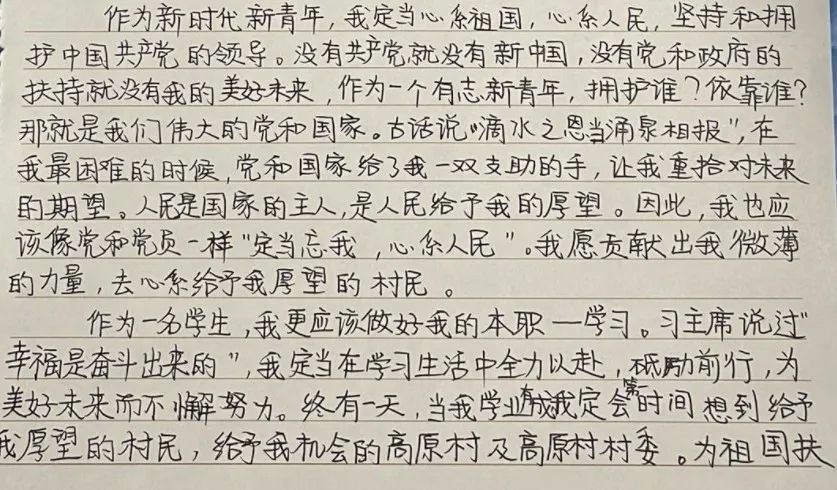 作为新时代新青年，我定当心系祖国，心系人民，坚持和拥
护中国共产党的领导。没有共产党就没有新中国，没有党和政府的
扶持就没有我的美好未来，作为一个有志新青年，拥护谁？依靠谁？
那就是我们伟大的党和国家。古话说“滴水之恩当涌泉相报”，在
我最困难的时候，党和国家给了我一双支助的手，让我重拾对未来
的期望。人民是国家的主人，是人民给予我的厚望。因此，我也应
该像党和党员一样“定当忘我，心系人民”。我愿贡献出我微薄
的力量，去心系给予我厚望的村民。
作为一名学生，我更应该做好我的本职一学习。习主席说过“
幸福是奋斗出来的”，我定当在学习生活中全力以赴，砥励前行，为
美好未来而不懈努力。终有一天，当我学业有成我定会第一时间想到给予
我厚望的村民，给予我机会的高原村及高原村村委。为祖国扶